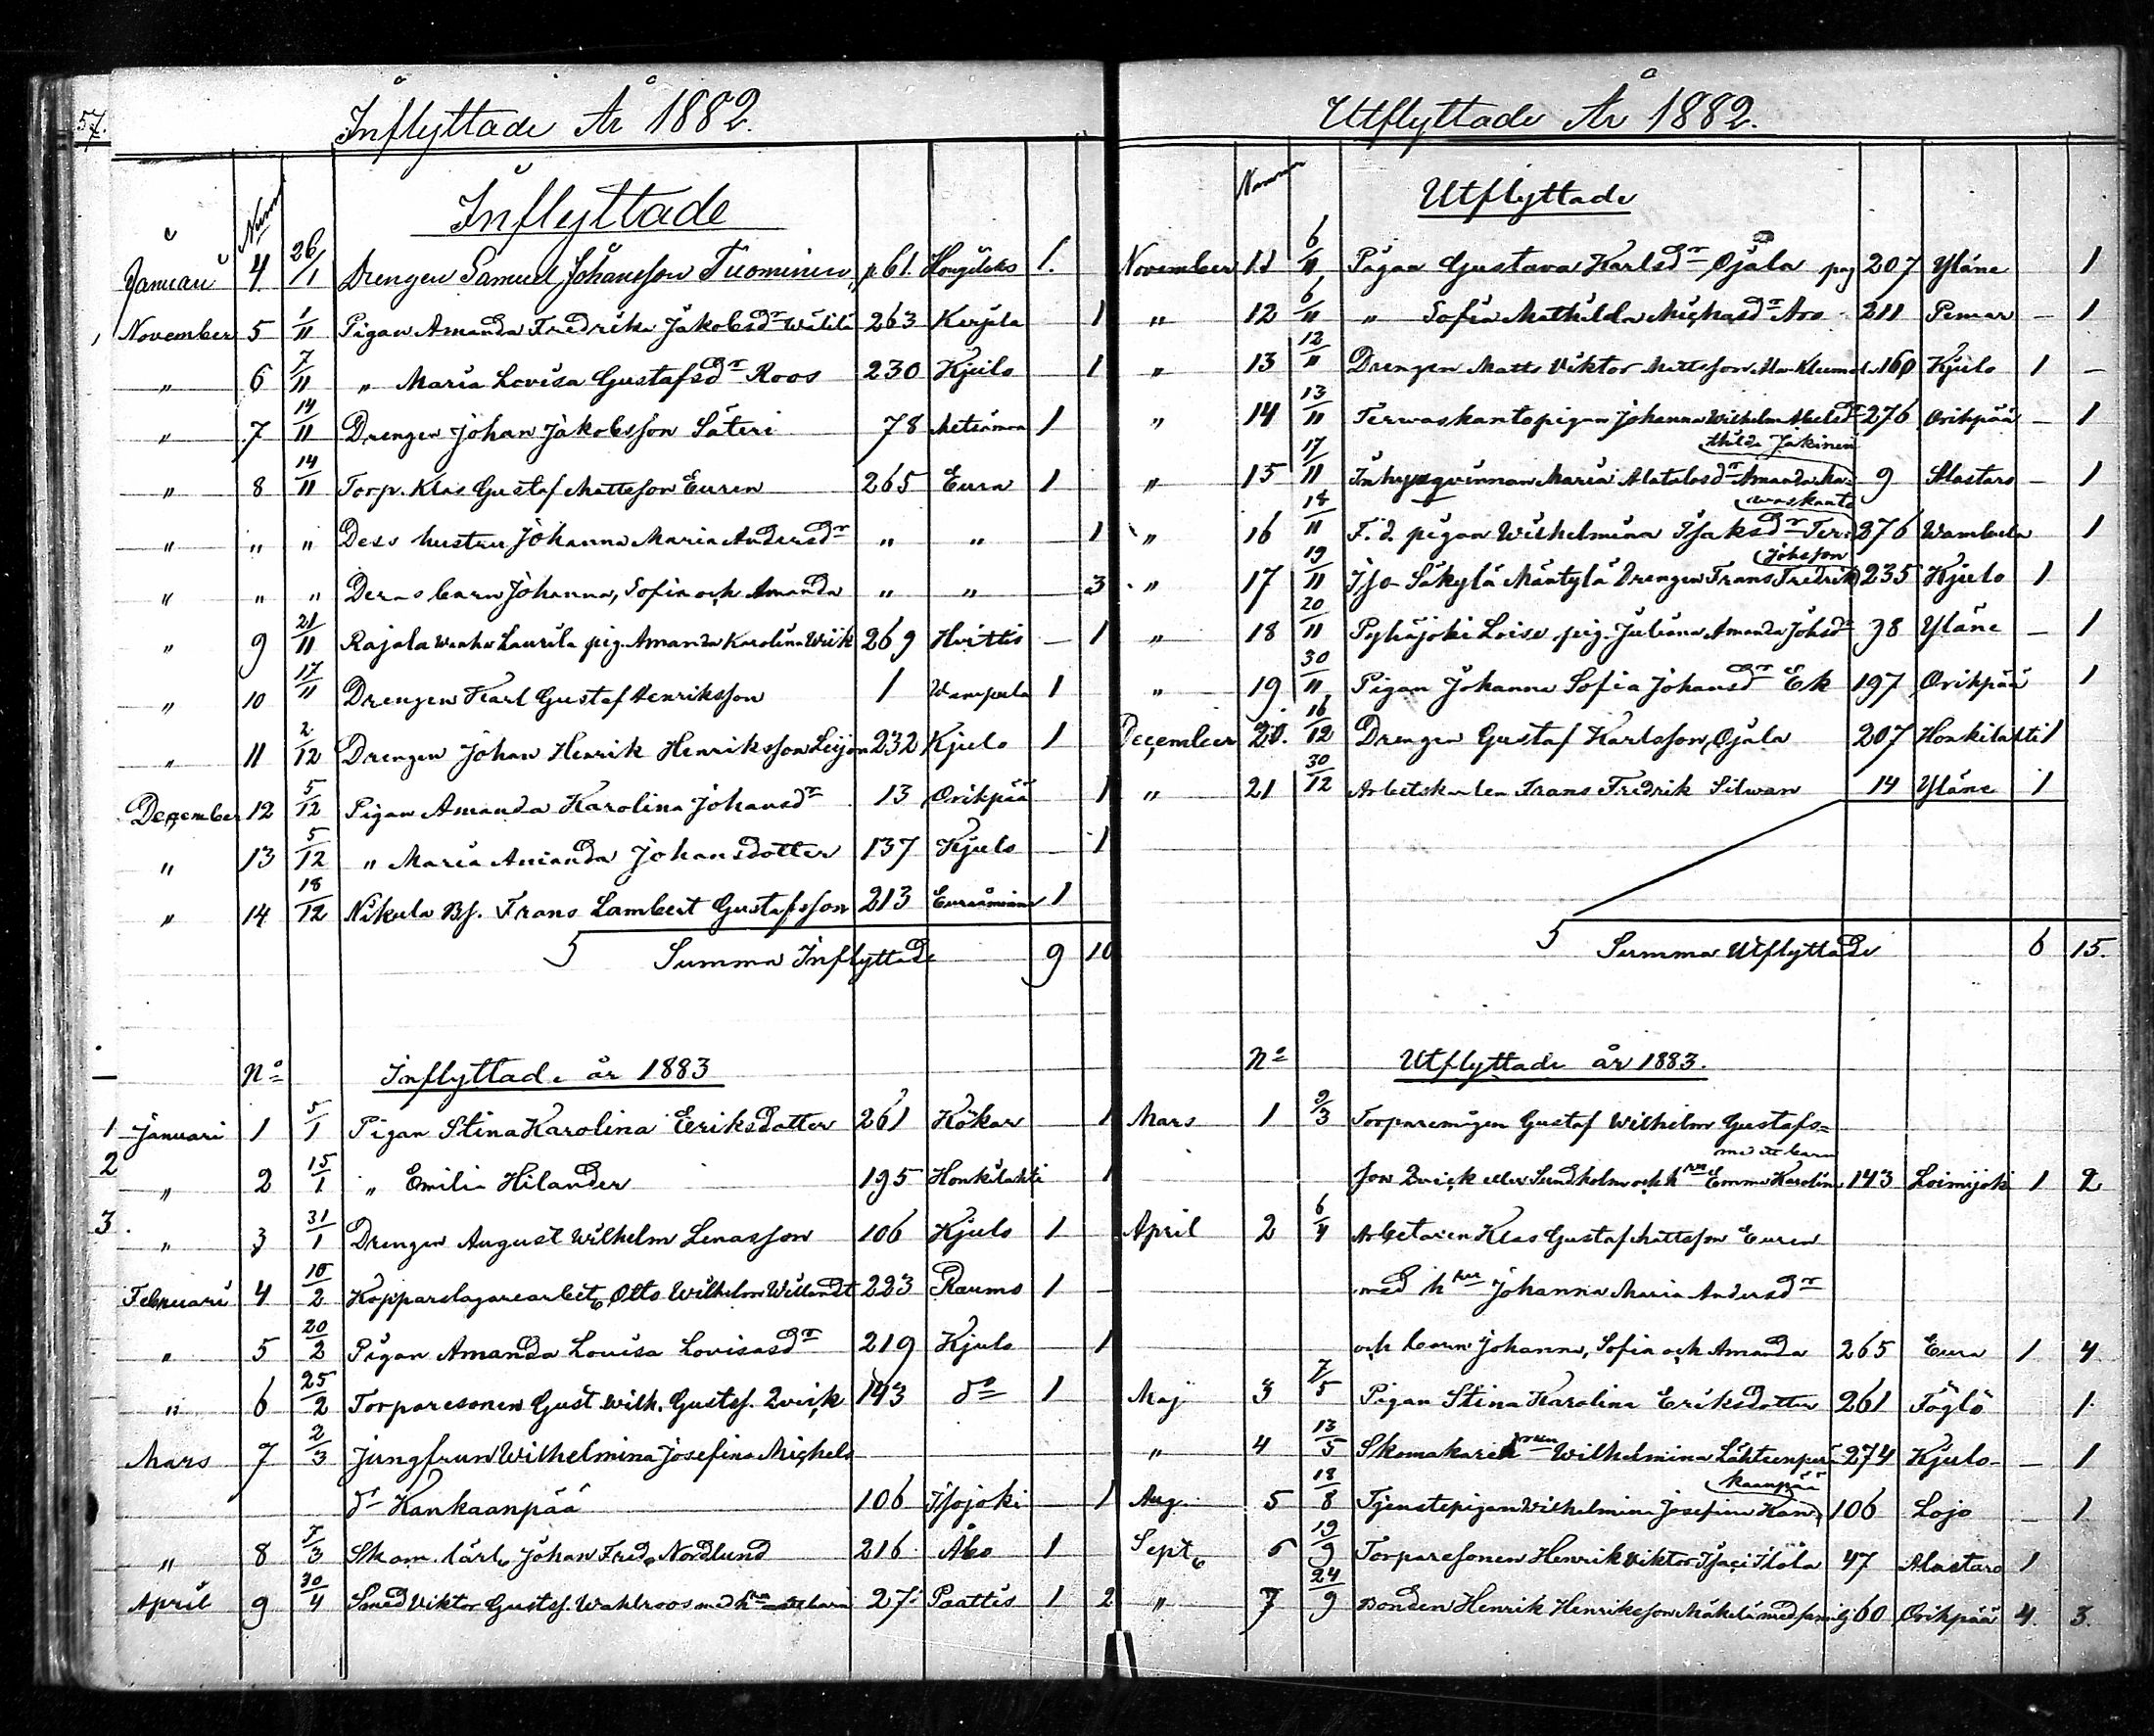 57.
Inflyttade År 1882.
Num
Inflyttade
Januari 4 26/1 Drengen Samuel Johansson Tuominen p. 61. 1.
November 5 1/11 Pigan Amanda Fredrika Jakobsdr 263 Kerjela 1
" 6 7/11 " Maria Lovisa Gustafsdr Roos 230 Kjulo 1
" 7 14/11 Drengen Johan Jakobsson Säteri 78 Metsämaa 1
" 8 14/11 Torp. Klas Gustaf Mattsson Euren 265 Eura 1
" " " Dess hustru Johanna Maria Andersdr " " 1
" " " Deras barn Johanna, Sofia och Amanda " " 3
" 9 21/11 Rajala Laurila pig. Amanda Karolina Wiik 269 Hvittis — 1
" 10 17/11 Drengen Karl Gustaf Henriksson 1 Wampula 1
" 11 2/12 Drengen Johan Henrik Henriksson Leijon 232 Kjulo 1
December 12 5/12 Pigan Amanda Karolina Johansdr 13 Orihpää 1
" 13 5/12 " Maria Amanda Johansdotter 137 Kjulo 1
" 14 18/12 Nikula Bs. Frans Lambert Gustafsson 213 Euraåminne 1
Summa Inflyttade 9 10
No Inflyttade år 1883
1 Januari 1 5/1 Pigan Stina Karolina Eriksdotter 261 Kökar 1
2 " 2 15/1 " Emilia Hilander 195 Honkilahti 1
3. " 3 31/1 Drengen August Wilhelm Lenasson 106 Kjulo 1
Februari 4 /2 Kopparslagarearbet. Otto Wilhelm Willandt 223 Raumo 1
" 5 20/2 Pigan Amanda Lovisa Lovisasdr 219 Kjulo 1
" 6 25/2 Torparesonen Gust. Wilh. Gustfs. Qvick 143 do 1
Mars 7 2/3 Jungfrun Wilhelmina Josefina Michels
dr Kankaanpää 106 Isojoki 1
" 8 7/3 Skom. lärl. Johan Fred. Nordlund 216 Åbo 1
April 9 30/4 Smed Viktor Gustfs. Wahlroos med hru 27 Paattis 1 2
Utflyttade År 1882.
Utflyttade
November 11 6/11 Pigan Gustava Karlsdr Ojala pag 207 Yläne 1
" 12 6/11 " Sofia Mathilda Michasdr Aro 211 Pemar — 1
" 13 12/11 Drengen Matts Viktor Mattsson 160 Kjulo 1 —
" 14 13/11 Terwaskantopigan Johanna Wilhelm. Abelsdr 276 Orihpää — 1
" 15 17/11 Inhysqvinnan Maria Amanda Ma- 9 Alastaro — 1
thilda Jakinen
" 16 18/11 F. d. pigan Wilhelmina Isaksdr Ter- 276 Wambula 1
waskanto
" 17 19/11 Iso-Säkylä Mäntylä Drengen Frans Fredrik 235 Kjulo 1
Johsson
" 18 20/11 Pyhäjoki Loise pig. Juliana Amanda Johsdr 38 Yläne — 1
" 19 30/11 Pigan Johanna Sofia Johansdr Ek 197 Orihpää 1
December 20. 16/12 Drengen Gustaf Karlsson Ojala 207 Honkilahti 1
" 21 30/12 Arbetskarlen Frans Fredrik Silwan 14 Yläne 1
Summa Utflyttade 6 15.
No Utflyttade år 1883.
Mars 1 9/3 Torparemågen Gustaf Wilhelm Gustafs=
med ett barn
son Qvick eller Sundholm och hru Emma Karolina 143 Loimijoki 1 2
April 2 6/4 Arbetaren Klas Gustaf Mattsson Euren
med hru Johanna Maria Andersdr
och barn Johanna, Sofia och Amanda 265 Eura 1 4
Maj 3 7/5 Pigan Stina Karolina Eriksdotter 261 Föglö 1
" 4 13/5 Wilhelmina Lähteenperä 274 Kjulo — 1
Aug. 5 18/8 Tjenstepigan Wilhelmina Josefina Kan- 106 Lojo 1
kaanpää
Sept. 6 19/9 Torparesonen Henrik Viktor Isaci Ilola 47 Alastaro 1
" 7 24/9 Bonden Henrik Henriksson Mäkelä med familj 60 Orihpää 4. 3.